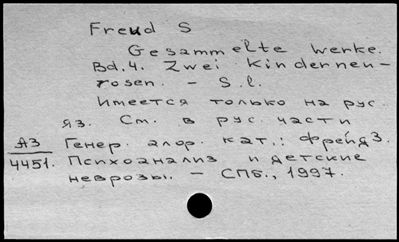 Freud S
Gesammelte Werke.
Bd. 4. Zwei Kinderneu-
rosen. - S. l.
Имеется только на рус.
яз. См. в рус. части
Генер. алф. кат.: Фрейд З.
Психоанализ и детские
неврозы. - СПб., 1997.
АЗ
4451.